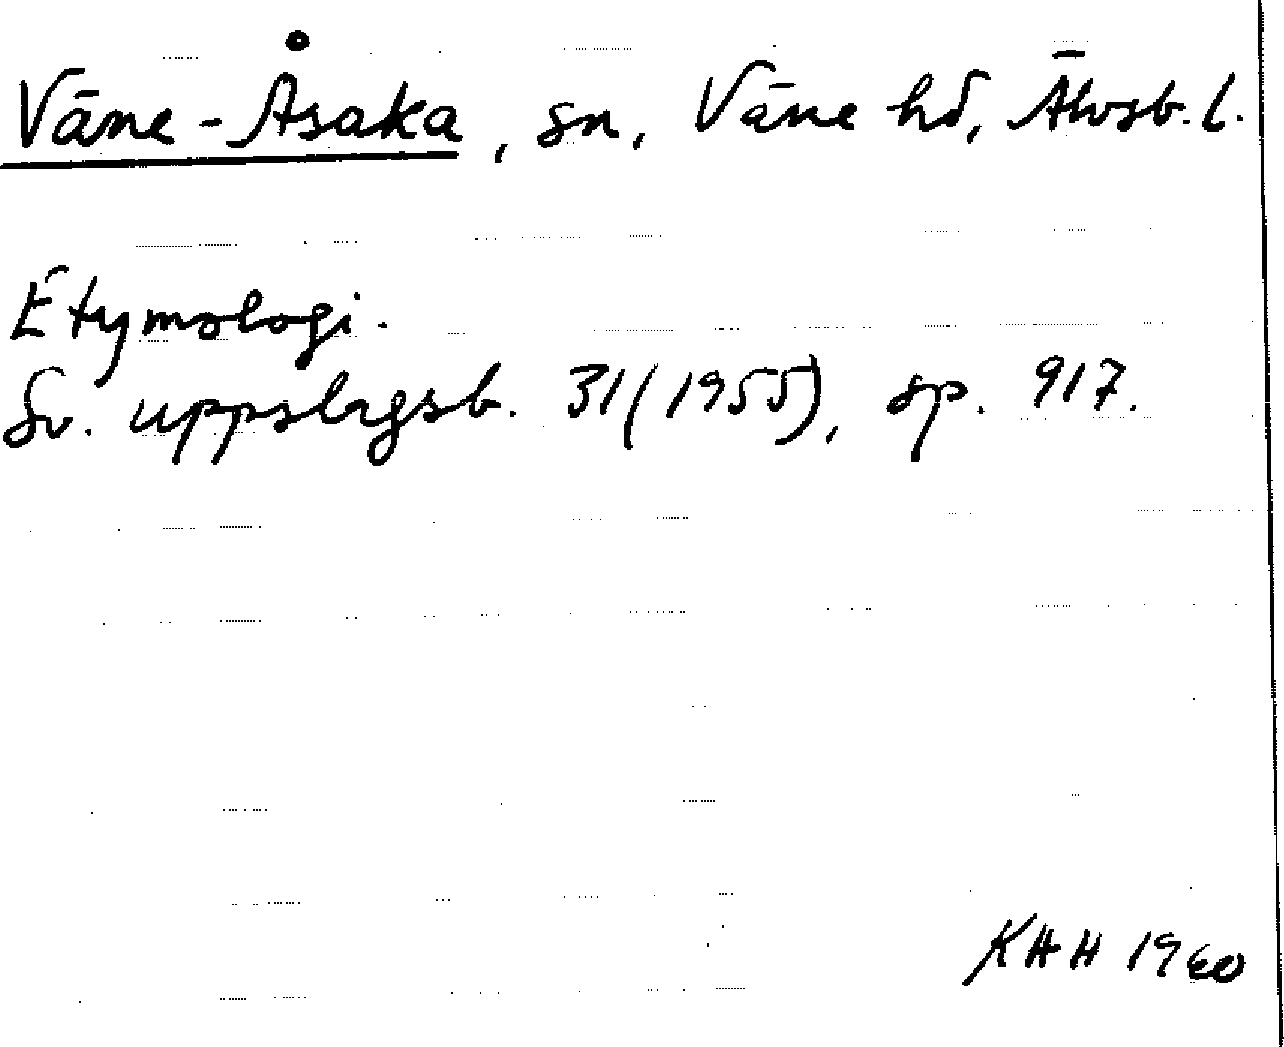 Väne-Åsaka, sn, Väne hd, Älvsb. l.
Etymologi.
Sv. uppslagsb. 31 (1955), sp. 917.
KHH 1960